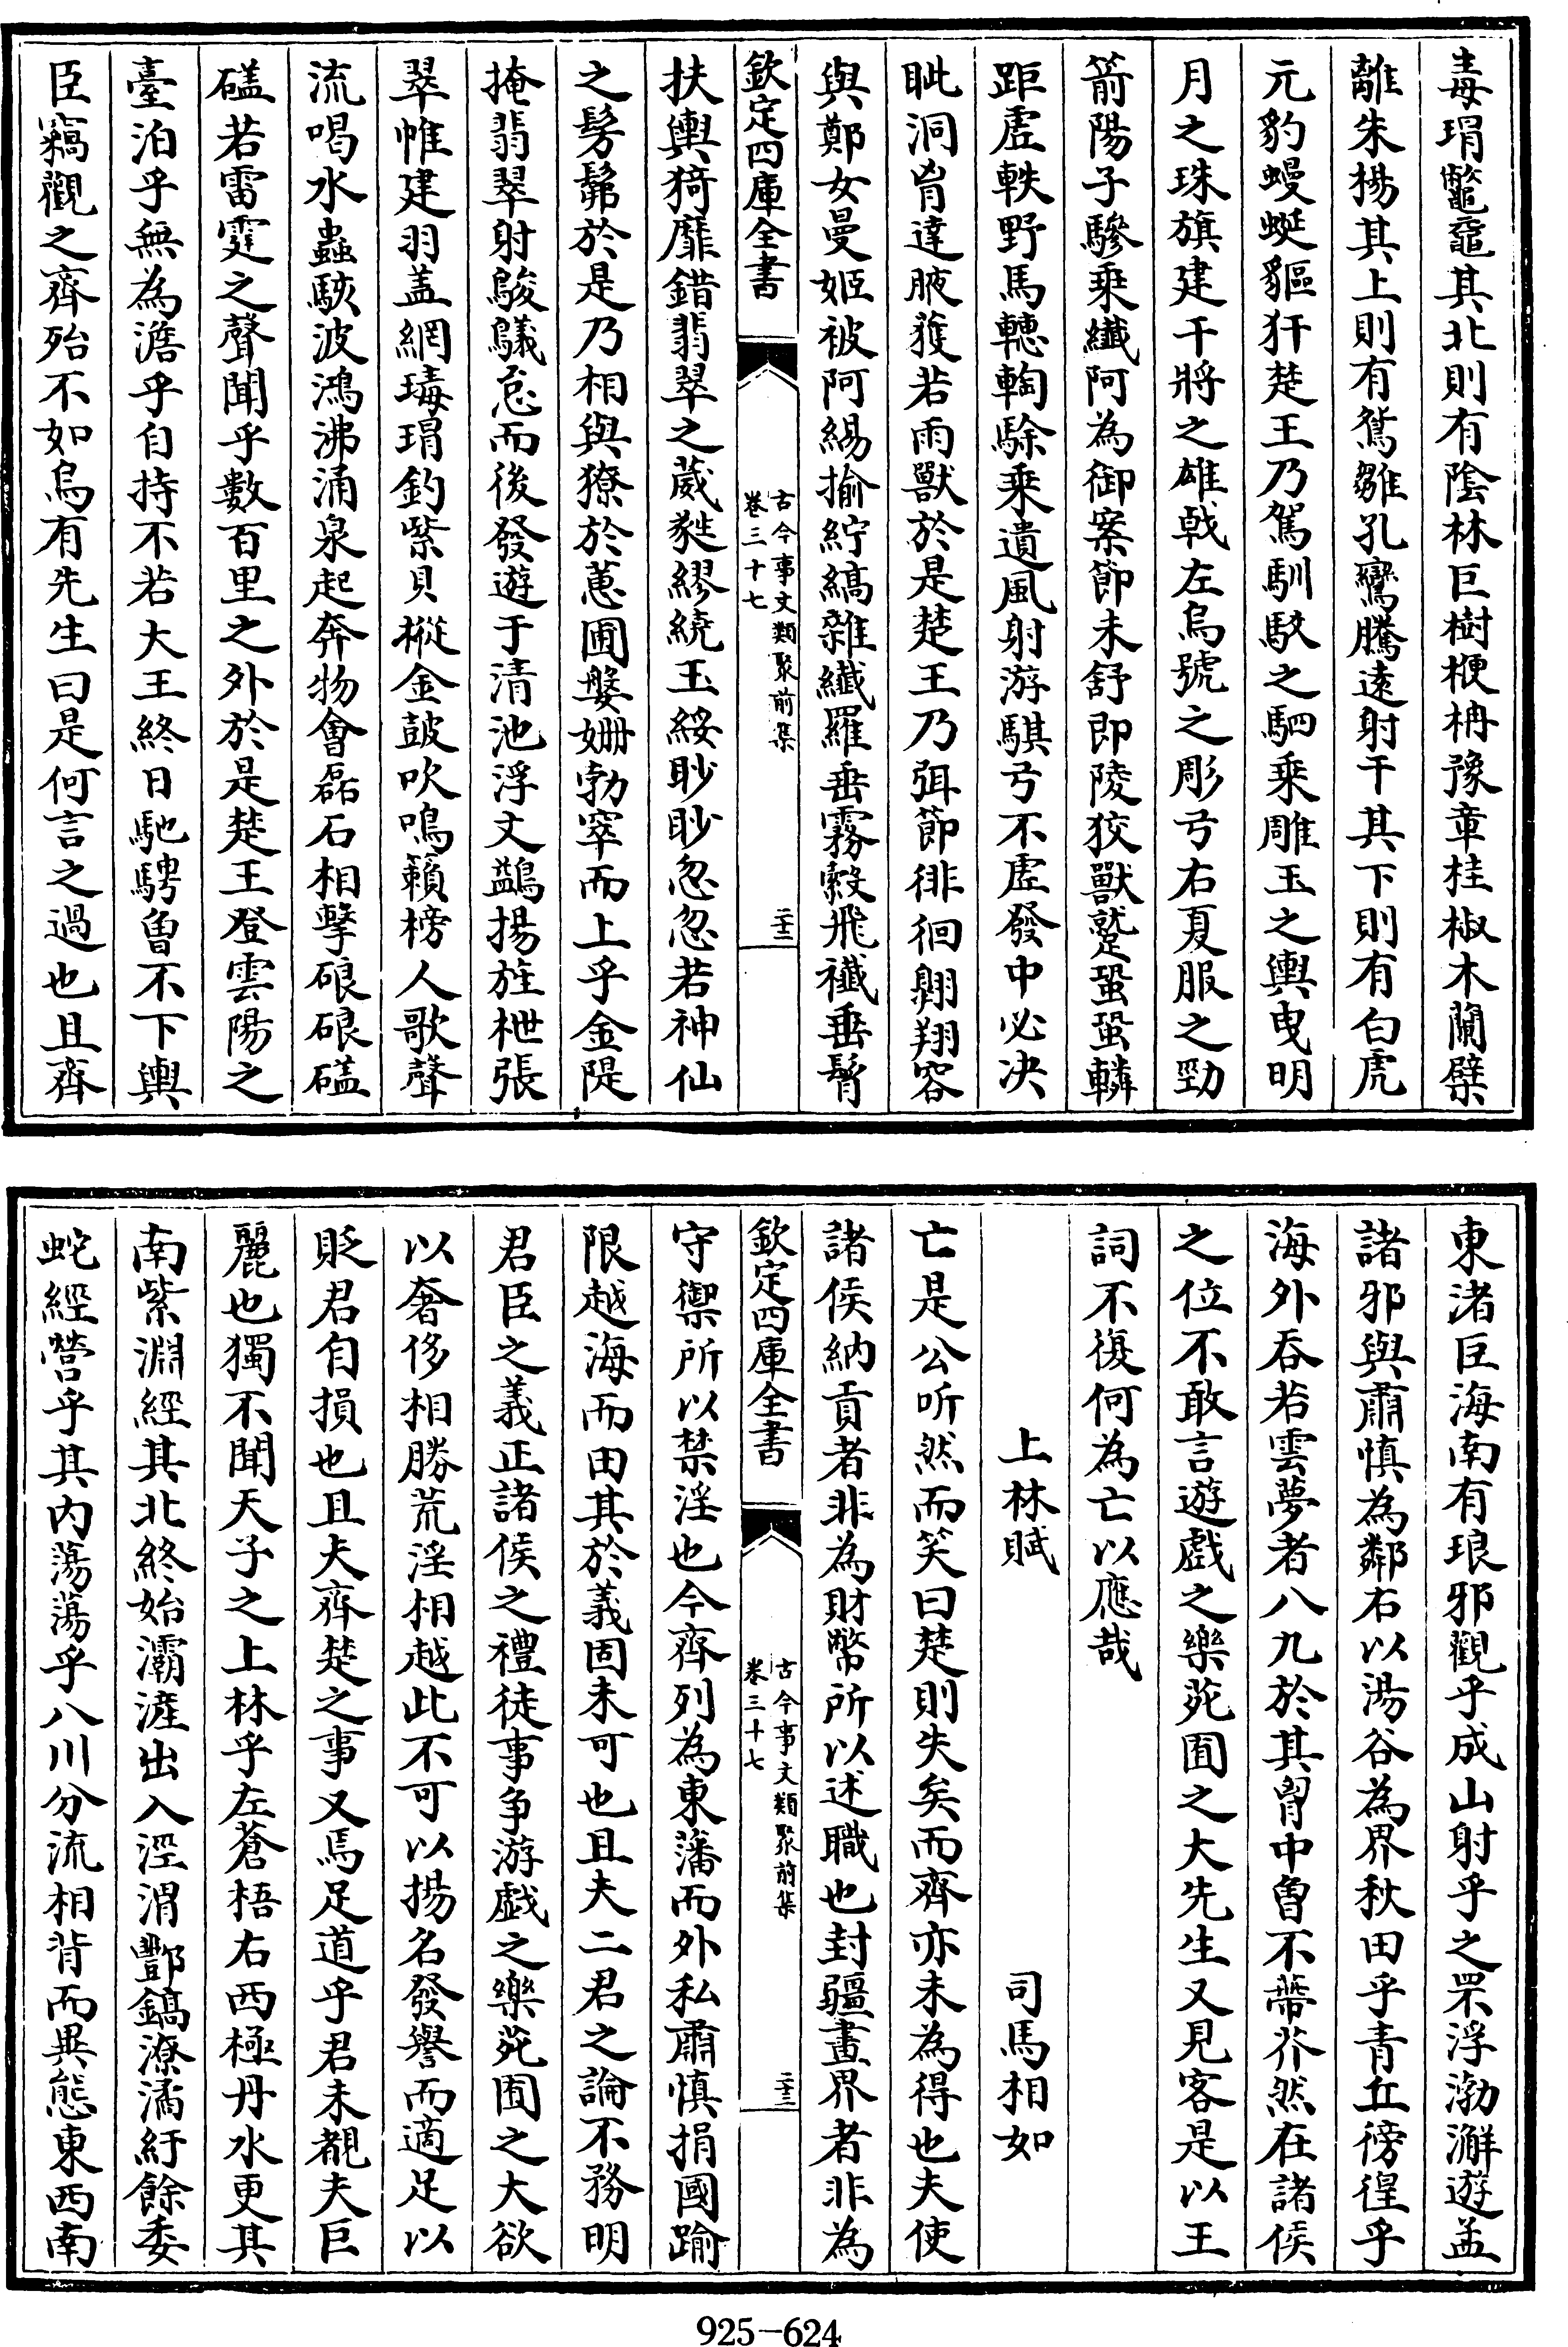 毒瑁鼈黿其北則有陰林巨樹楩柟豫章桂椒木蘭檗
離朱楊其上則有鴛雛孔鸞騰遠射干其下則有白虎
元豹蟃蜒貙犴楚王乃駕馴駮之駟乗雕玉之輿曳明
月之珠旗建干將之雄戟左烏號之彫弓右夏服之勁
箭陽子驂乗纎阿為御案節未舒即陵狡獸蹵蛩蛩轔
距虚軼野馬轊騊駼乗遺風射游騏弓不虚發中必决
眦洞胷達腋獲若雨獸於是楚王乃弭節徘徊翺翔容
與鄭女曼姬被阿緆揄紵縞雜纎羅垂霧縠飛襳垂髾
欽定四庫全書
古今事文類聚前集
卷三十七
二十三
扶輿猗靡錯翡翠之葳蕤繆繞玉綏眇眇忽忽若神仙
之髣髴於是乃相與獠於蕙圃媻姍勃窣而上乎金隄
掩翡翠射鵔鸃怠而後發遊于清池浮文鷁揚旌枻張
翠帷建羽盖網瑇瑁釣紫貝摐金鼓吹鳴籟榜人歌聲
流喝水蟲駭波鴻沸涌泉起奔物會磊石相擊硠硠礚
礚若雷霆之聲聞乎數百里之外於是楚王登雲陽之
臺泊乎無為澹乎自持不若大王終日馳騁曾不下輿
臣竊觀之齊殆不如烏有先生曰是何言之過也且齊
東渚巨海南有琅邪觀乎成山射乎之罘浮渤澥遊孟
諸邪與肅慎為鄰右以湯谷為界秋田乎青丘徬徨乎
海外吞若雲夢者八九於其胷中曽不蔕芥然在諸侯
之位不敢言遊戲之樂苑囿之大先生又見客是以王
詞不復何為亡以應哉
上林賦　司馬相如
亡是公听然而笑曰楚則失矣而齊亦未為得也夫使
諸侯納貢者非為財幣所以述職也封疆畫界者非為
欽定四庫全書
古今事文類聚前集
卷三十七
二十三
守禦所以禁淫也今齊列為東藩而外私肅慎捐國踰
限越海而田其於義固未可也且夫二君之論不務明
君臣之義正諸侯之禮徒事争游戲之樂苑囿之大欲
以奢侈相勝荒淫相越此不可以揚名發譽而適足以
貶君自損也且夫齊楚之事又焉足道乎君未覩夫巨
麗也獨不聞天子之上林乎左蒼梧右西極丹水更其
南紫淵經其北終始灞滻出入涇渭酆鎬潦潏紆餘委
蛇經營乎其内蕩蕩乎八川分流相背而異態東西南
925-624